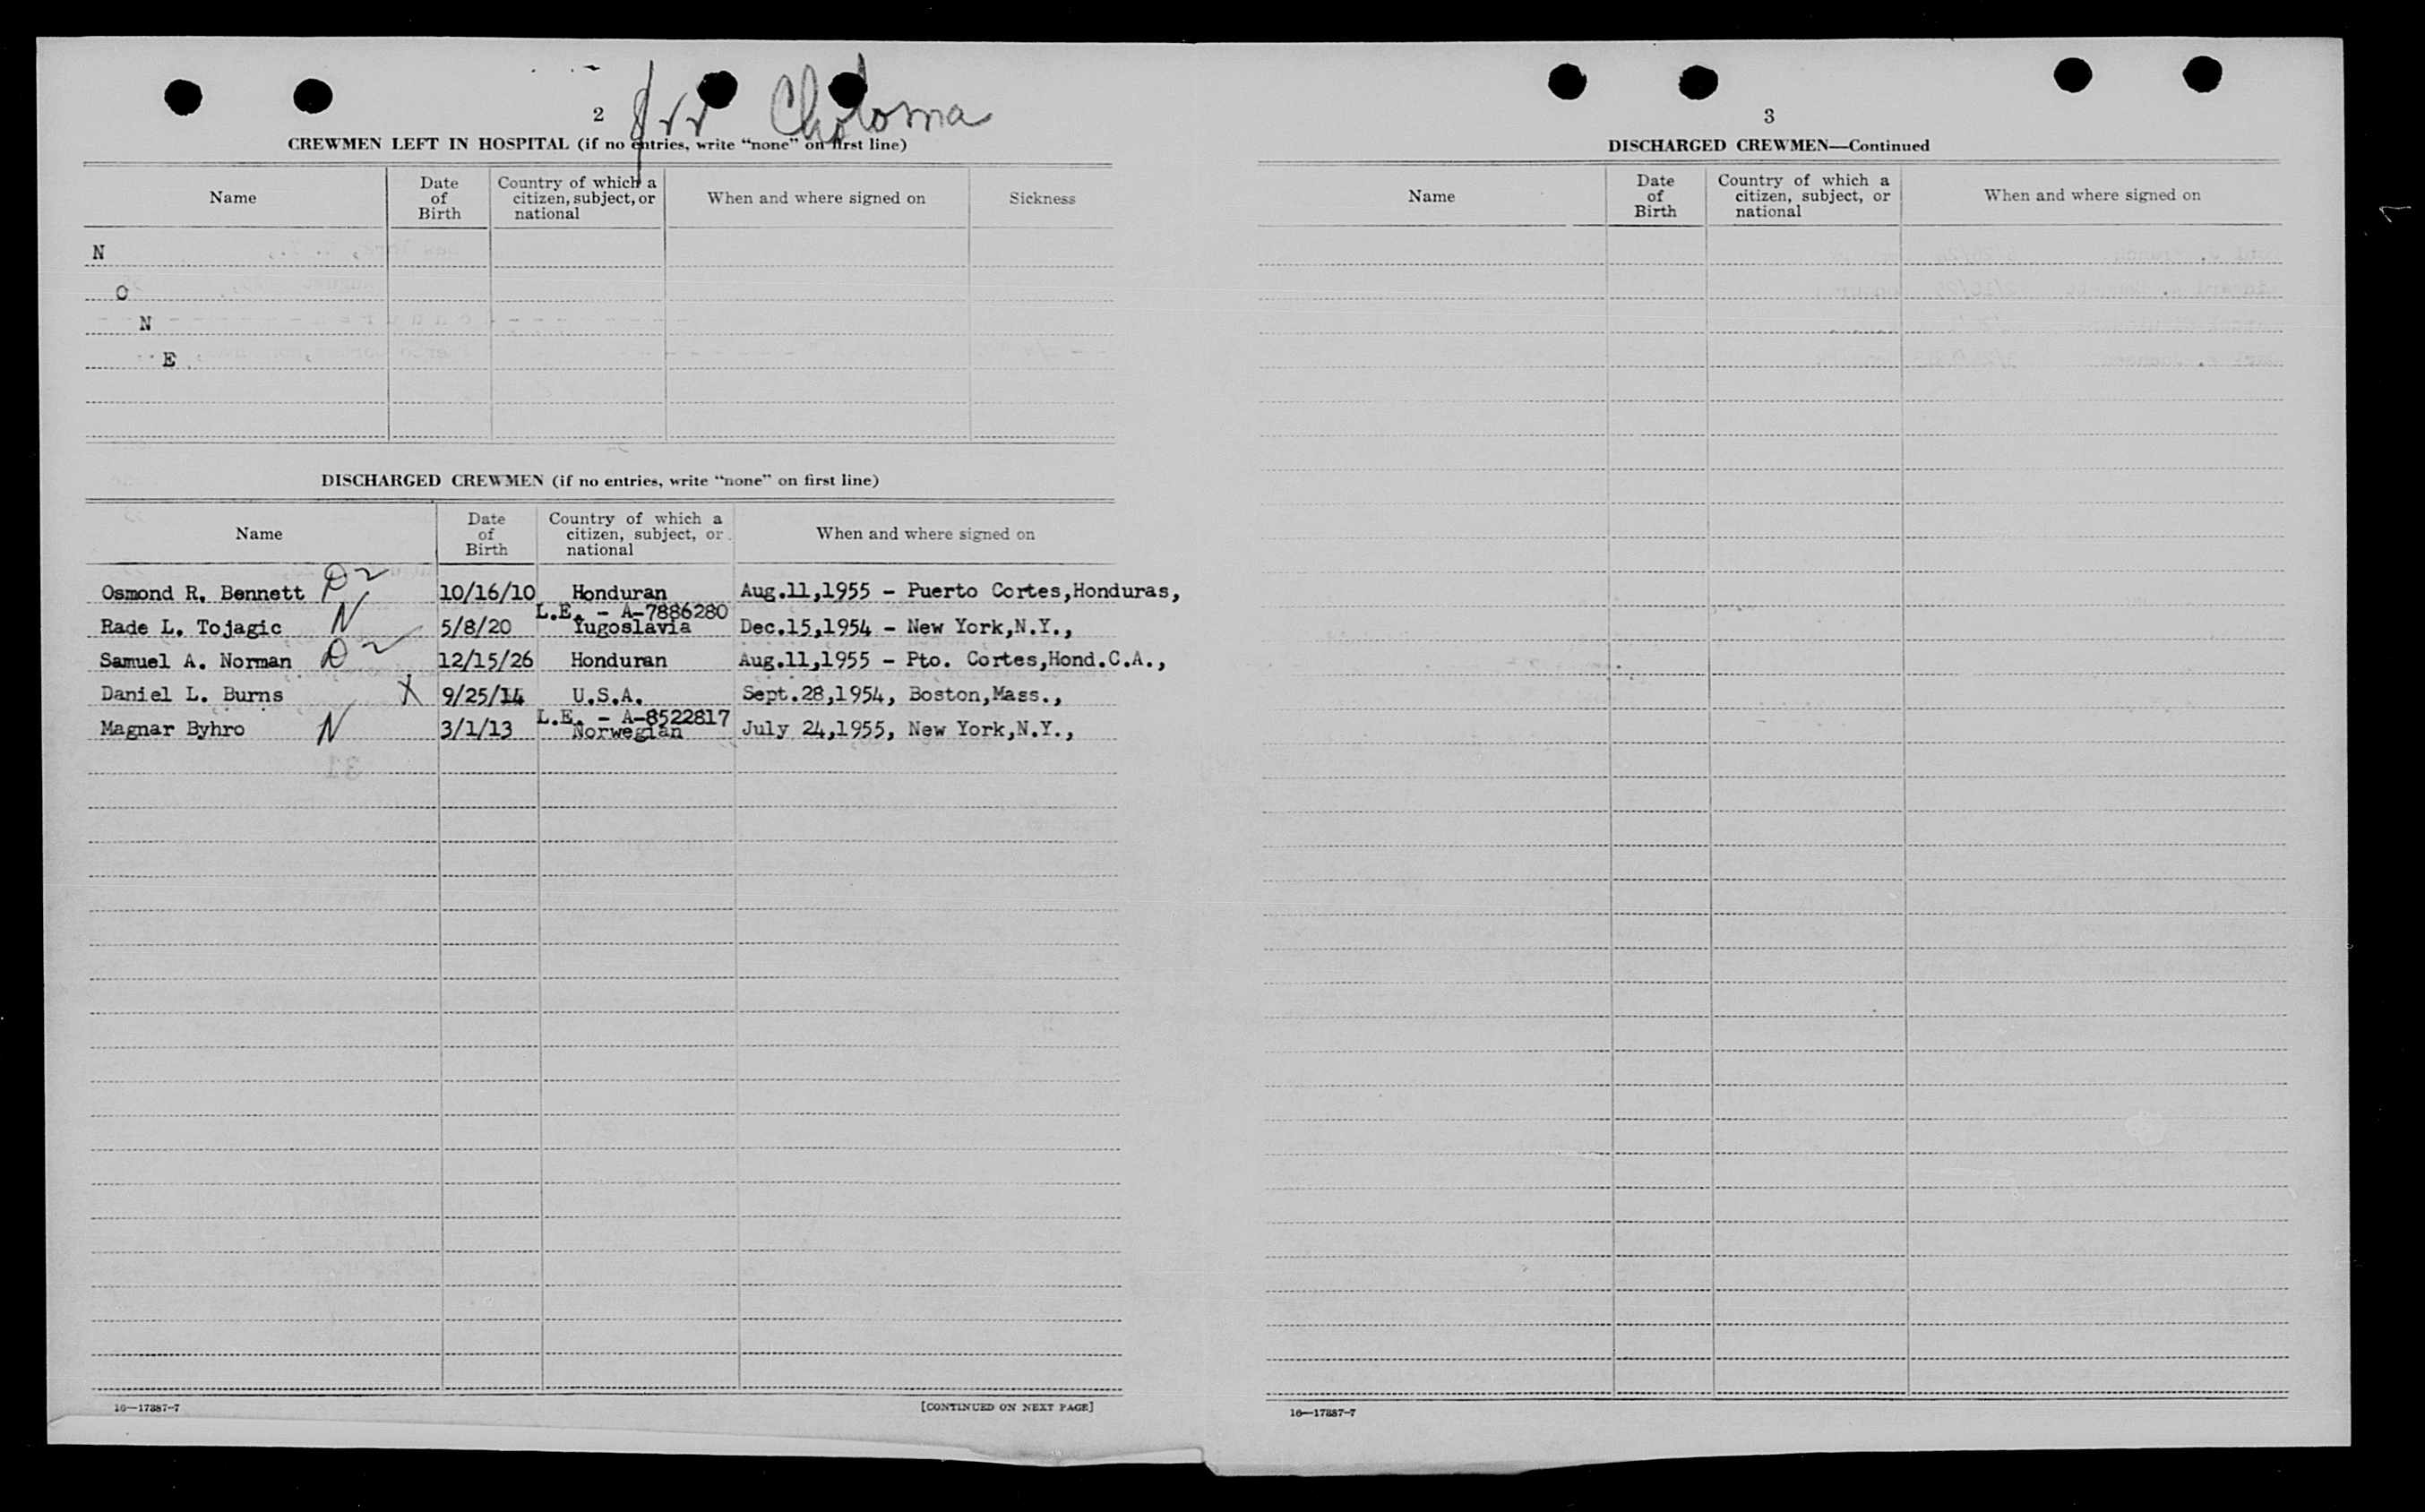 2
Choloma
CREWMEN LEFT IN HOSPITAL (if no entries, write “none” on first line)
Name Date of Birth Country of which a citizen, subject, or national When and where signed on Sickness
N
O
N
E
DISCHARGED CREWMEN (if no entries, write “none” on first line)
Name Date of Birth Country of which a citizen, subject, or national When and where signed on
Osmond R. Bennett D2 10/16/10 Honduran Aug.11,1955 - Puerto Cortes,Honduras,
L.E. - A-7886280
Rade L. Tojagic N 5/8/20 Yugoslavia Dec.15,1954 - New York,N.Y.,
Samuel A. Norman D2 12/15/26 Honduran Aug.11,1955 - Pto. Cortes,Hond.C.A.,
Daniel L. Burns X 9/25/14 U.S.A. Sept.28,1954, Boston,Mass.,
L.E. - A-8522817
Magnar Byhro N 3/1/13 Norwegian July 24,1955, New York,N.Y.,
16—17887-7 [CONTINUED ON NEXT PAGE]
3
DISCHARGED CREWMEN—Continued
Name Date of Birth Country of which a citizen, subject, or national When and where signed on
16—17887-7